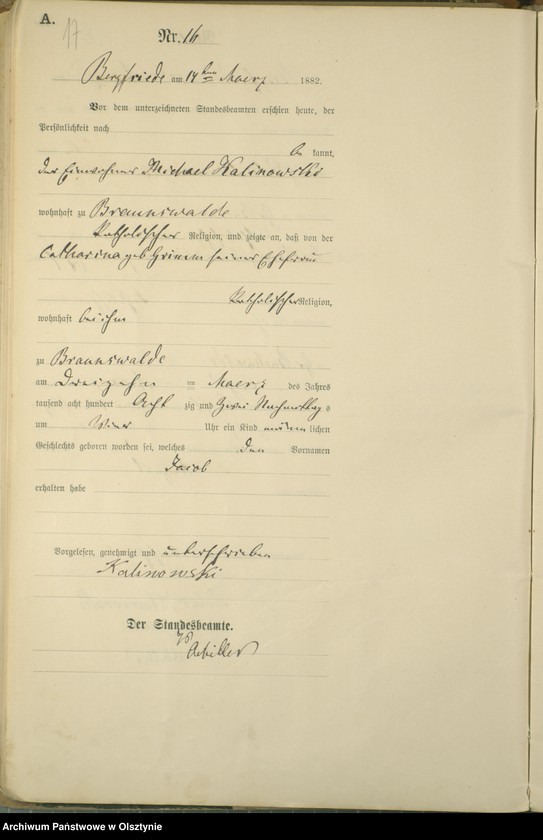 A.
17
Nr. 16
Bergfriede am 14ten Maerz 1882.
Vor dem unterzeichneten Standesbeamten erschien heute, der
Persönlichkeit nach
be kannt,
der Einwohner Michael Kalinowski
wohnhaft zu Braunswalde
katholischer Religion, und zeigte an, daß von der
Catharina geb Grimm seiner Ehefrau
katholischer Religion,
wohnhaft bei ihm
zu Braunswalde
am Dreizehn ten Maerz des Jahres
tausend acht hundert Acht zig und Zwei Nachmittags
um Uhr ein Kind männlichen
Geschlechts geboren worden sei, welches den Vornamen
Jacob
erhalten habe
Vorgelesen, genehmigt und unterschrieben
Kalinowski
Der Standesbeamte.
Archiwum Państwowe w Olsztynie